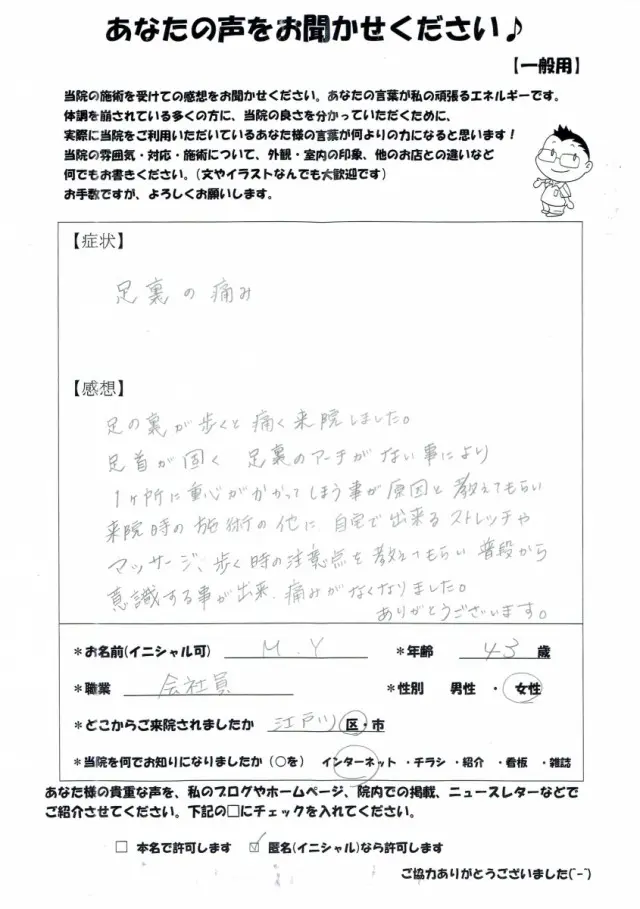 あなたの声をお聞かせください♪
【一般用】
当院の施術を受けての感想をお聞かせください。あなたの言葉が私の頑張るエネルギーです。
体調を崩されている多くの方に、当院の良さを分かっていただくために、
実際に当院をご利用いただいているあなた様の言葉が何よりの力になると思います！
当院の雰囲気・対応・施術について、外観・室内の印象、他のお店との違いなど
何でもお書きください。(文やイラストなんでも大歓迎です)
お手数ですが、よろしくお願いします。
【症状】
足裏の痛み
【感想】
足の裏が歩くと痛く来院しました。
足首が固く 足裏のアーチがない事により
1ヶ所に重心がかかってしまう事が原因と教えてもらい
来院時の施術の他に 自宅で出来るストレッチや
マッサージ、歩く時の注意点を教えてもらい 普段から
意識する事が出来、痛みがなくなりました。
ありがとうございます。
*お名前(イニシャル可) M.Y *年齢 43 歳
*職業 会社員 *性別 男性 ・ 女性
*どこからご来院されましたか 江戸川 区・市
*当院を何でお知りになりましたか(○を) インターネット ・チラシ ・紹介 ・看板 ・雑誌
あなた様の貴重な声を、私のブログやホームページ、院内での掲載、ニュースレターなどで
ご紹介させてください。下記の□にチェックを入れてください。
□ 本名で許可します ☑ 匿名(イニシャル)なら許可します
ご協力ありがとうございました(^-^)